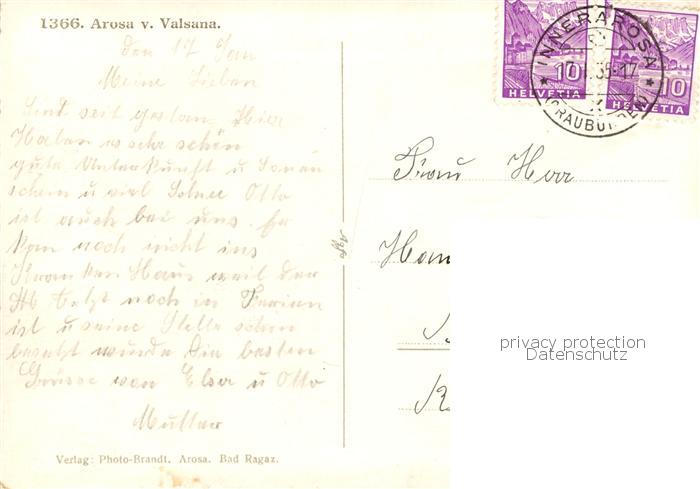 1366. Arosa v. Valsana.
den 17 Jan
Meine Lieben
Sind seit gestern Hier
Haben sehr schön
gute Unterkunft u Sonnen
schein u viel Schnee Otto
ist auch bei uns. Er
kan noch nicht ins
Kranken Haus weil der
Artzt noch in Ferien
ist u seine Stelle schon
besetzt wurde Die besten
Grüsse von Elsa u Otto
Mutter
Verlag: Photo-Brandt, Arosa. Bad Ragaz.
10
HELVETIA
10
HELVETIA
INNERAROSA
(GRAUBÜNDEN)
Frau Herr
privacy protection
Datenschutz